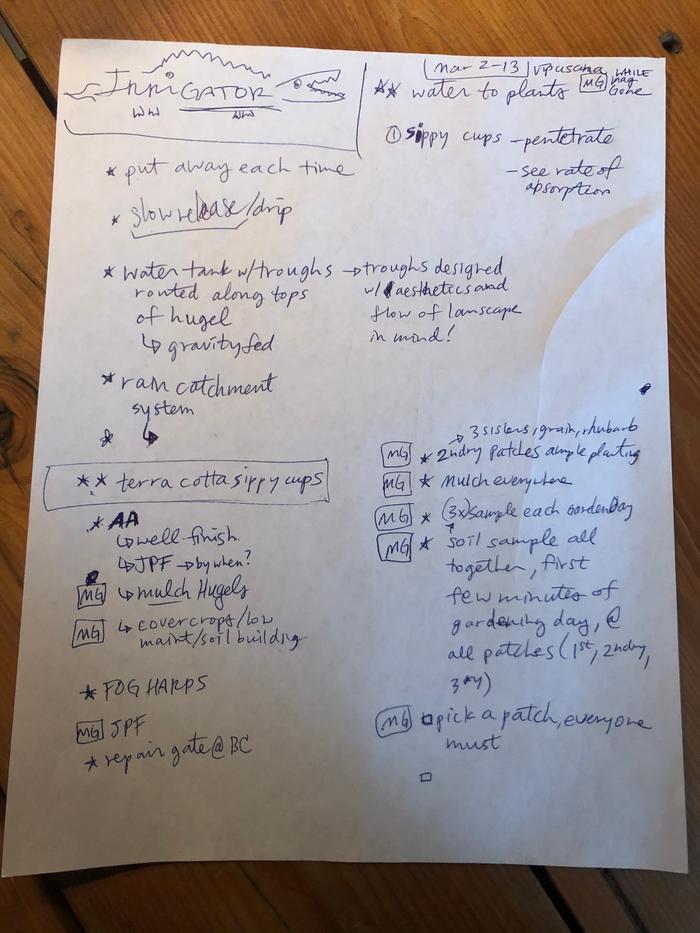 IRRiGATOR
* put away each time
* slow release/drip
* water tank w/troughs → troughs designed
routed along tops
of hugel
↳ gravity fed
w/ aesthetics and
flow of lanscape
in mind!
* rain catchment
system
* ↳
** terra cotta sippy cups
* AA
↳ well-finish.
↳ JPF → by when?
MG ↳ mulch Hugels
MG ↳ covercrops/low
maint/soil building
* FOG HARPS
MG JPF
* repair gate @ BC
mar 2-13 vipassana MG WHILE
mag
GONE
** water to plants
① sippy cups - pentetrate
- see rate of
absorption
→ 3 sisters, grain, rhubarb
MG * 2ndry patches ample planting
MG * mulch everywhere
MG * (3x) sample each gardenDay
MG * soil sample all
together, first
few minutes of
gardening day, @
all patches (1st, 2ndry,
3ry)
MG □ pick a patch, everyone
must
□